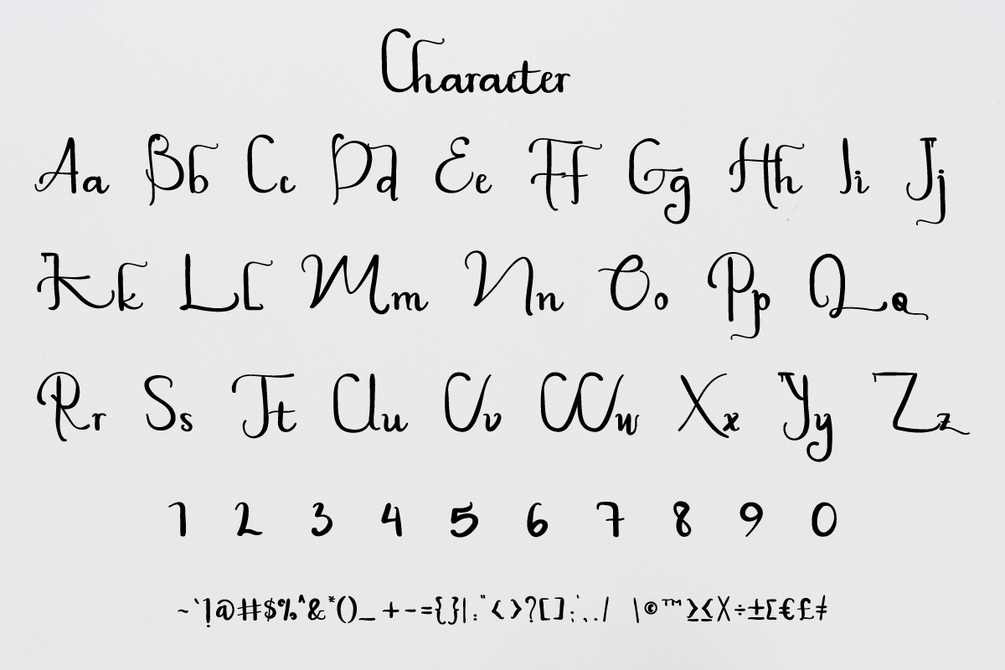 Character
Aa Bb Cc Dd Ee Ff Gg Hh Ii Jj
Kk Ll Mm Nn Oo Pp Qq
Rr Ss Tt Uu Vv Ww Xx Yy Zz
1 2 3 4 5 6 7 8 9 0
~`!@#$%^&*()_+-={}|:"<>?[];',./ \©™≥≤X÷±[€£≠